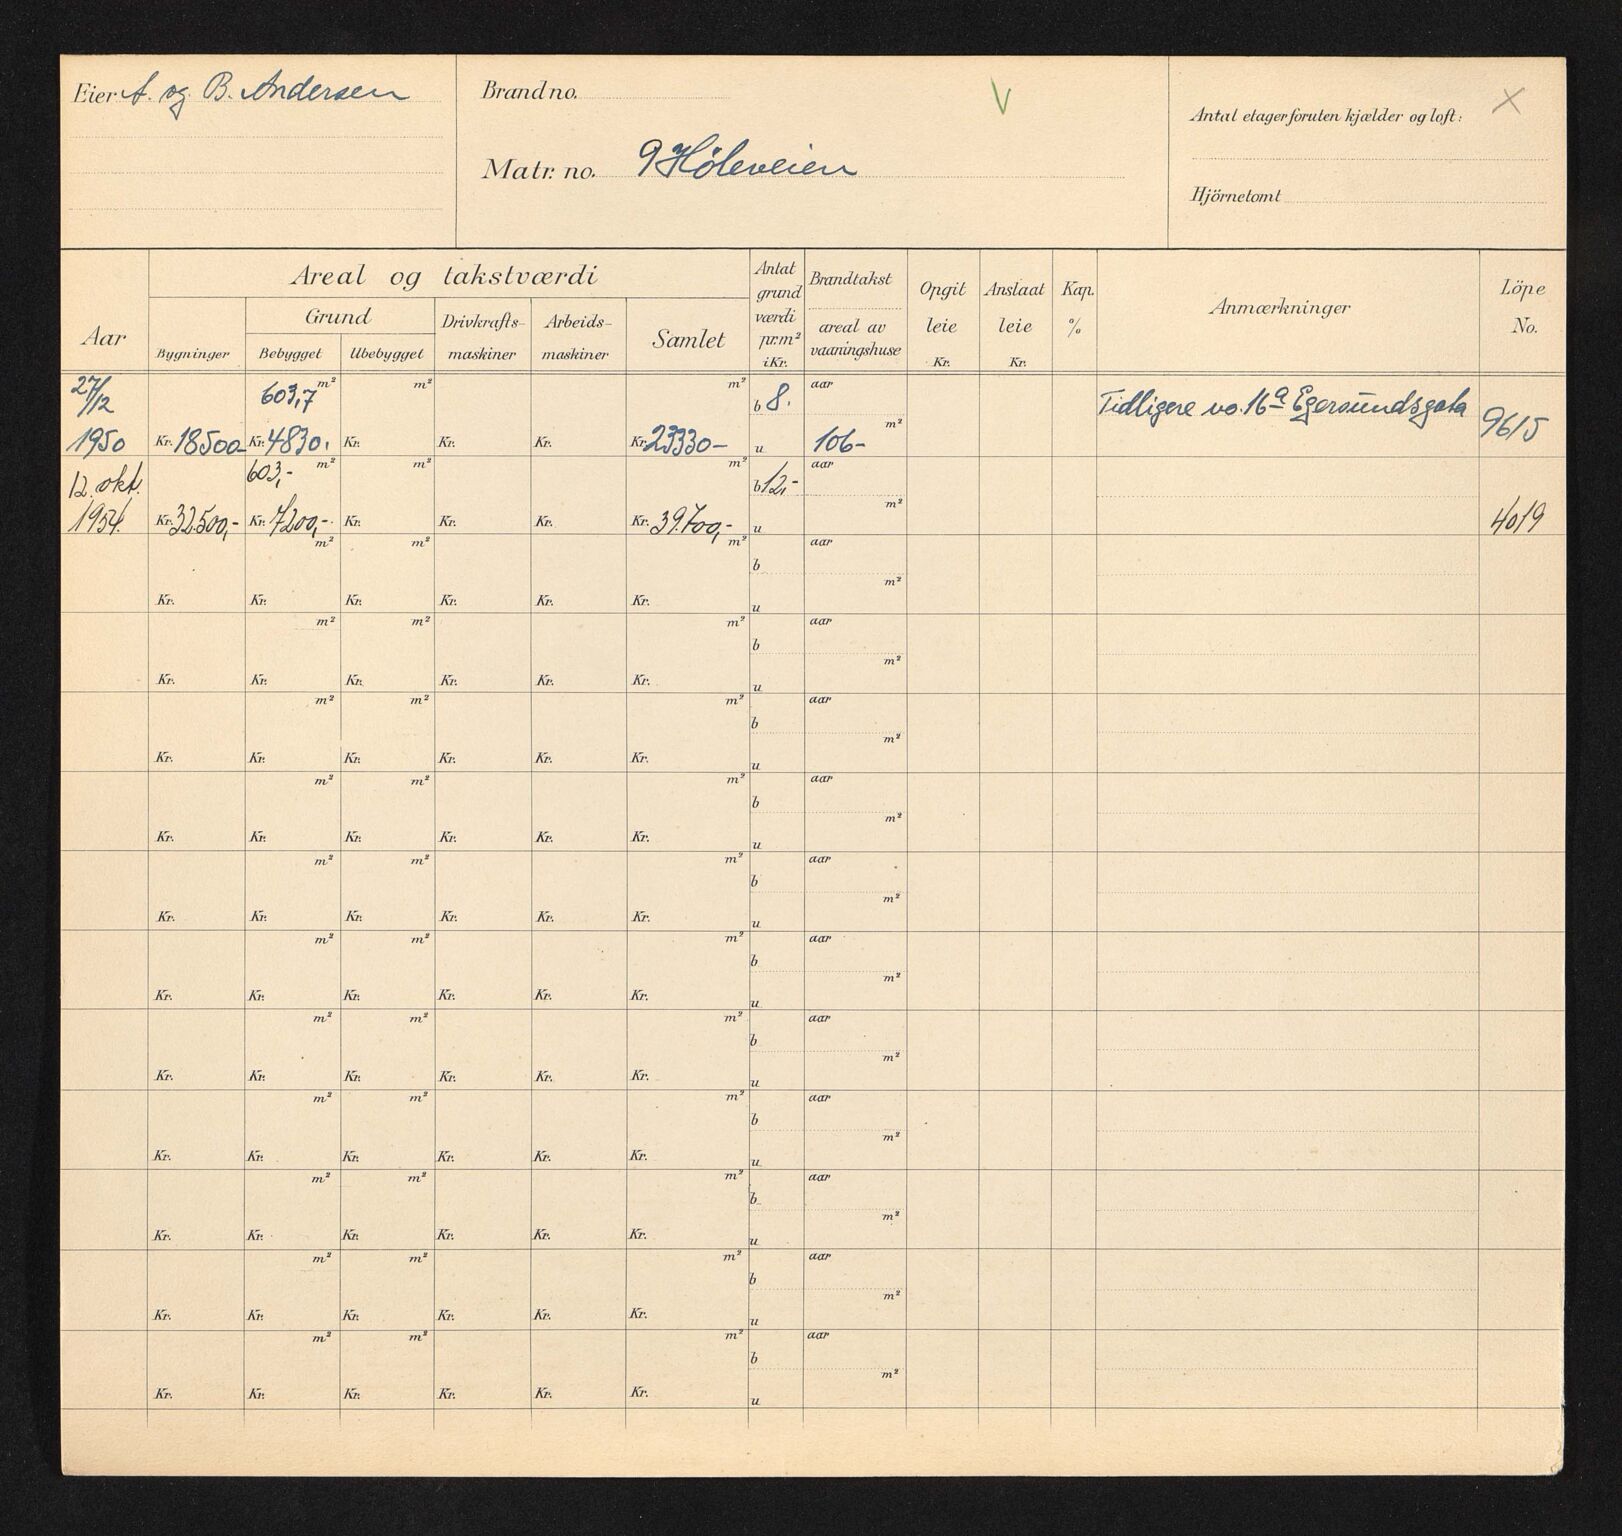 Eier A. og B. Andersen
Brand no.
Matr. no. 9 Höleveien
V
Antal etager foruten kjælder og loft: X
Hjörnetomt
Aar
Areal og takstværdi
Bygninger
Grund
Bebygget
Ubebygget
Drivkrafts-
maskiner
Arbeids-
maskiner
Samlet
Antat
grund
værdi
pr.m²
i Kr.
Brandtakst
areal av
vaaningshuse
Opgit
leie
Kr.
Anslaat
leie
Kr.
Kap.
%
Anmærkninger
Löpe
No.
27/12 603,7 m² m² m² b 8. aar Tidligere no. 16a Egersundsgata
1950 Kr. 18500- Kr. 4830. Kr. Kr. Kr. Kr. 23330- u 106- m² 9615
12. okt. 603,- m² m² m² b 12,- aar
1954. Kr. 32.500,- Kr. 7200,- Kr. Kr. Kr. Kr. 39.700,- u m² 4019
m² m² m² b aar
Kr. Kr. Kr. Kr. Kr. Kr. u m²
m² m² m² b aar
Kr. Kr. Kr. Kr. Kr. Kr. u m²
m² m² m² b aar
Kr. Kr. Kr. Kr. Kr. Kr. u m²
m² m² m² b aar
Kr. Kr. Kr. Kr. Kr. Kr. u m²
m² m² m² b aar
Kr. Kr. Kr. Kr. Kr. Kr. u m²
m² m² m² b aar
Kr. Kr. Kr. Kr. Kr. Kr. u m²
m² m² m² b aar
Kr. Kr. Kr. Kr. Kr. Kr. u m²
m² m² m² b aar
Kr. Kr. Kr. Kr. Kr. Kr. u m²
m² m² m² b aar
Kr. Kr. Kr. Kr. Kr. Kr. u m²
m² m² m² b aar
Kr. Kr. Kr. Kr. Kr. Kr. u m²
m² m² m² b aar
Kr. Kr. Kr. Kr. Kr. Kr. u m²